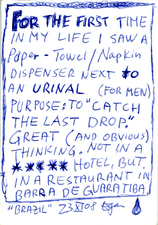 FOR THE FIRST TIME
IN MY LIFE I SAW A
Paper-Towel/Napkin
DISPENSER NEXT to
AN URINAL (FOR MEN)
PURPOSE: TO "CATCH
THE LAST DROP,"
GREAT (AND OBVIOUS)
THINKING. NOT IN A
***** HOTEL, BUT
IN A RESTAURANT IN
BARRA DE GUARATIBA,
"BRAZIL" 23 XI 08